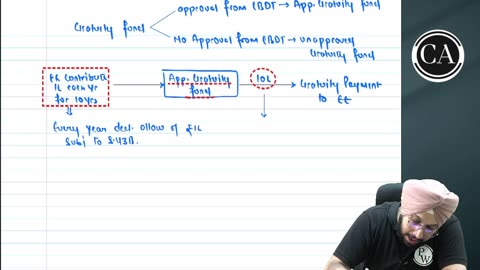 approval from CBDT → App. Gratuity fund
Gratuity fund
No Approval from CBDT → unapproved
Gratuity fund
ER Contribute
1L each yr
for 10 yrs
App. Gratuity
fund
10L
Gratuity Payment
to EE
Every year ded. allow of ₹1L
Subj to S.43B.
CA
PW